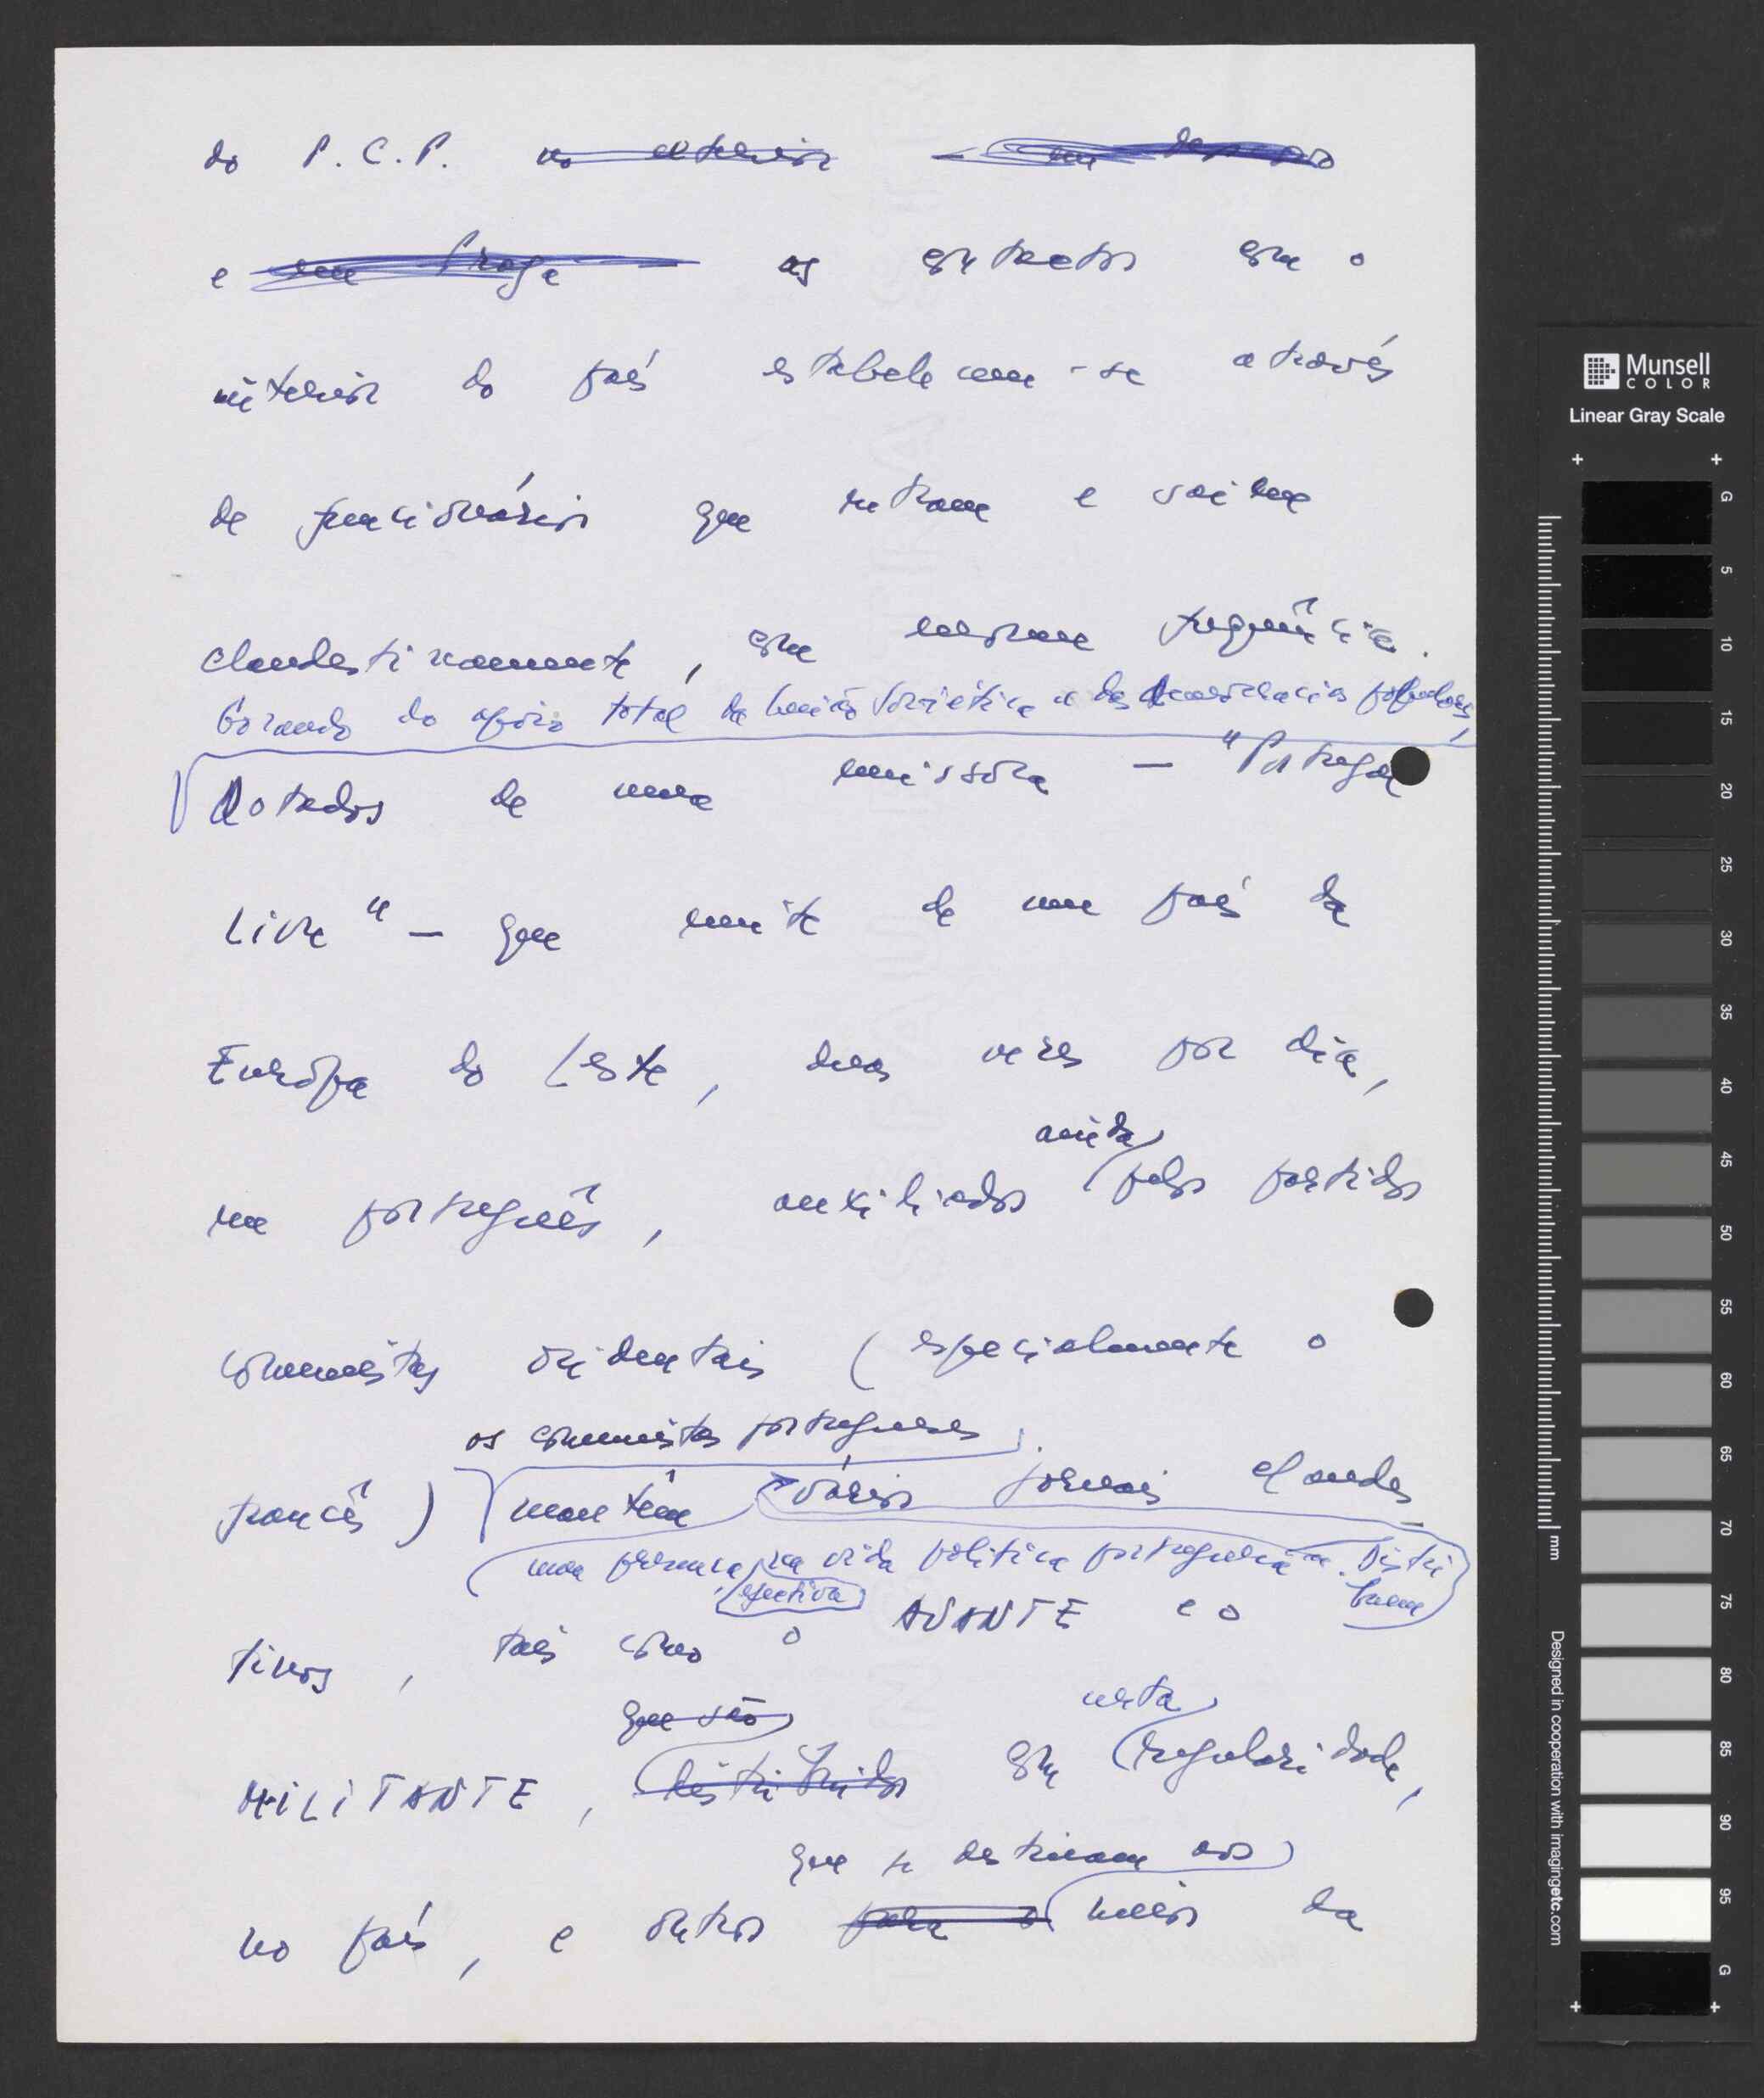 do P.C.P. no exterior — em
e em Praga — os contactos com o
interior do país estabelecem-se através
de funcionários que entram e saiem
clandestinamente, com enorme frequência.
Gozando do apoio total da União Soviética e das democracias populares,
Dotados de uma emissora — "Portugal
Livre" — que emite de um país da
Europa do Leste, duas vezes por dia,
ainda
em português, auxiliados pelos partidos
comunistas ocidentais (especialmente o
os comunistas portugueses
francês) mantêm vários jornais clandes-
uma presença na vida política portuguesa. Distri
efectiva
buem
tinos, tais como o AVANTE e o
que são
certa
MILITANTE, distribuídos com regularidade,
que se destinam aos
no país, e outros para o meios da
Munsell
COLOR
Linear Gray Scale
G
5
10
15
20
25
30
35
40
45
50
55
60
65
70
75
80
85
90
95
G
mm
Designed in cooperation with imagingetc.com